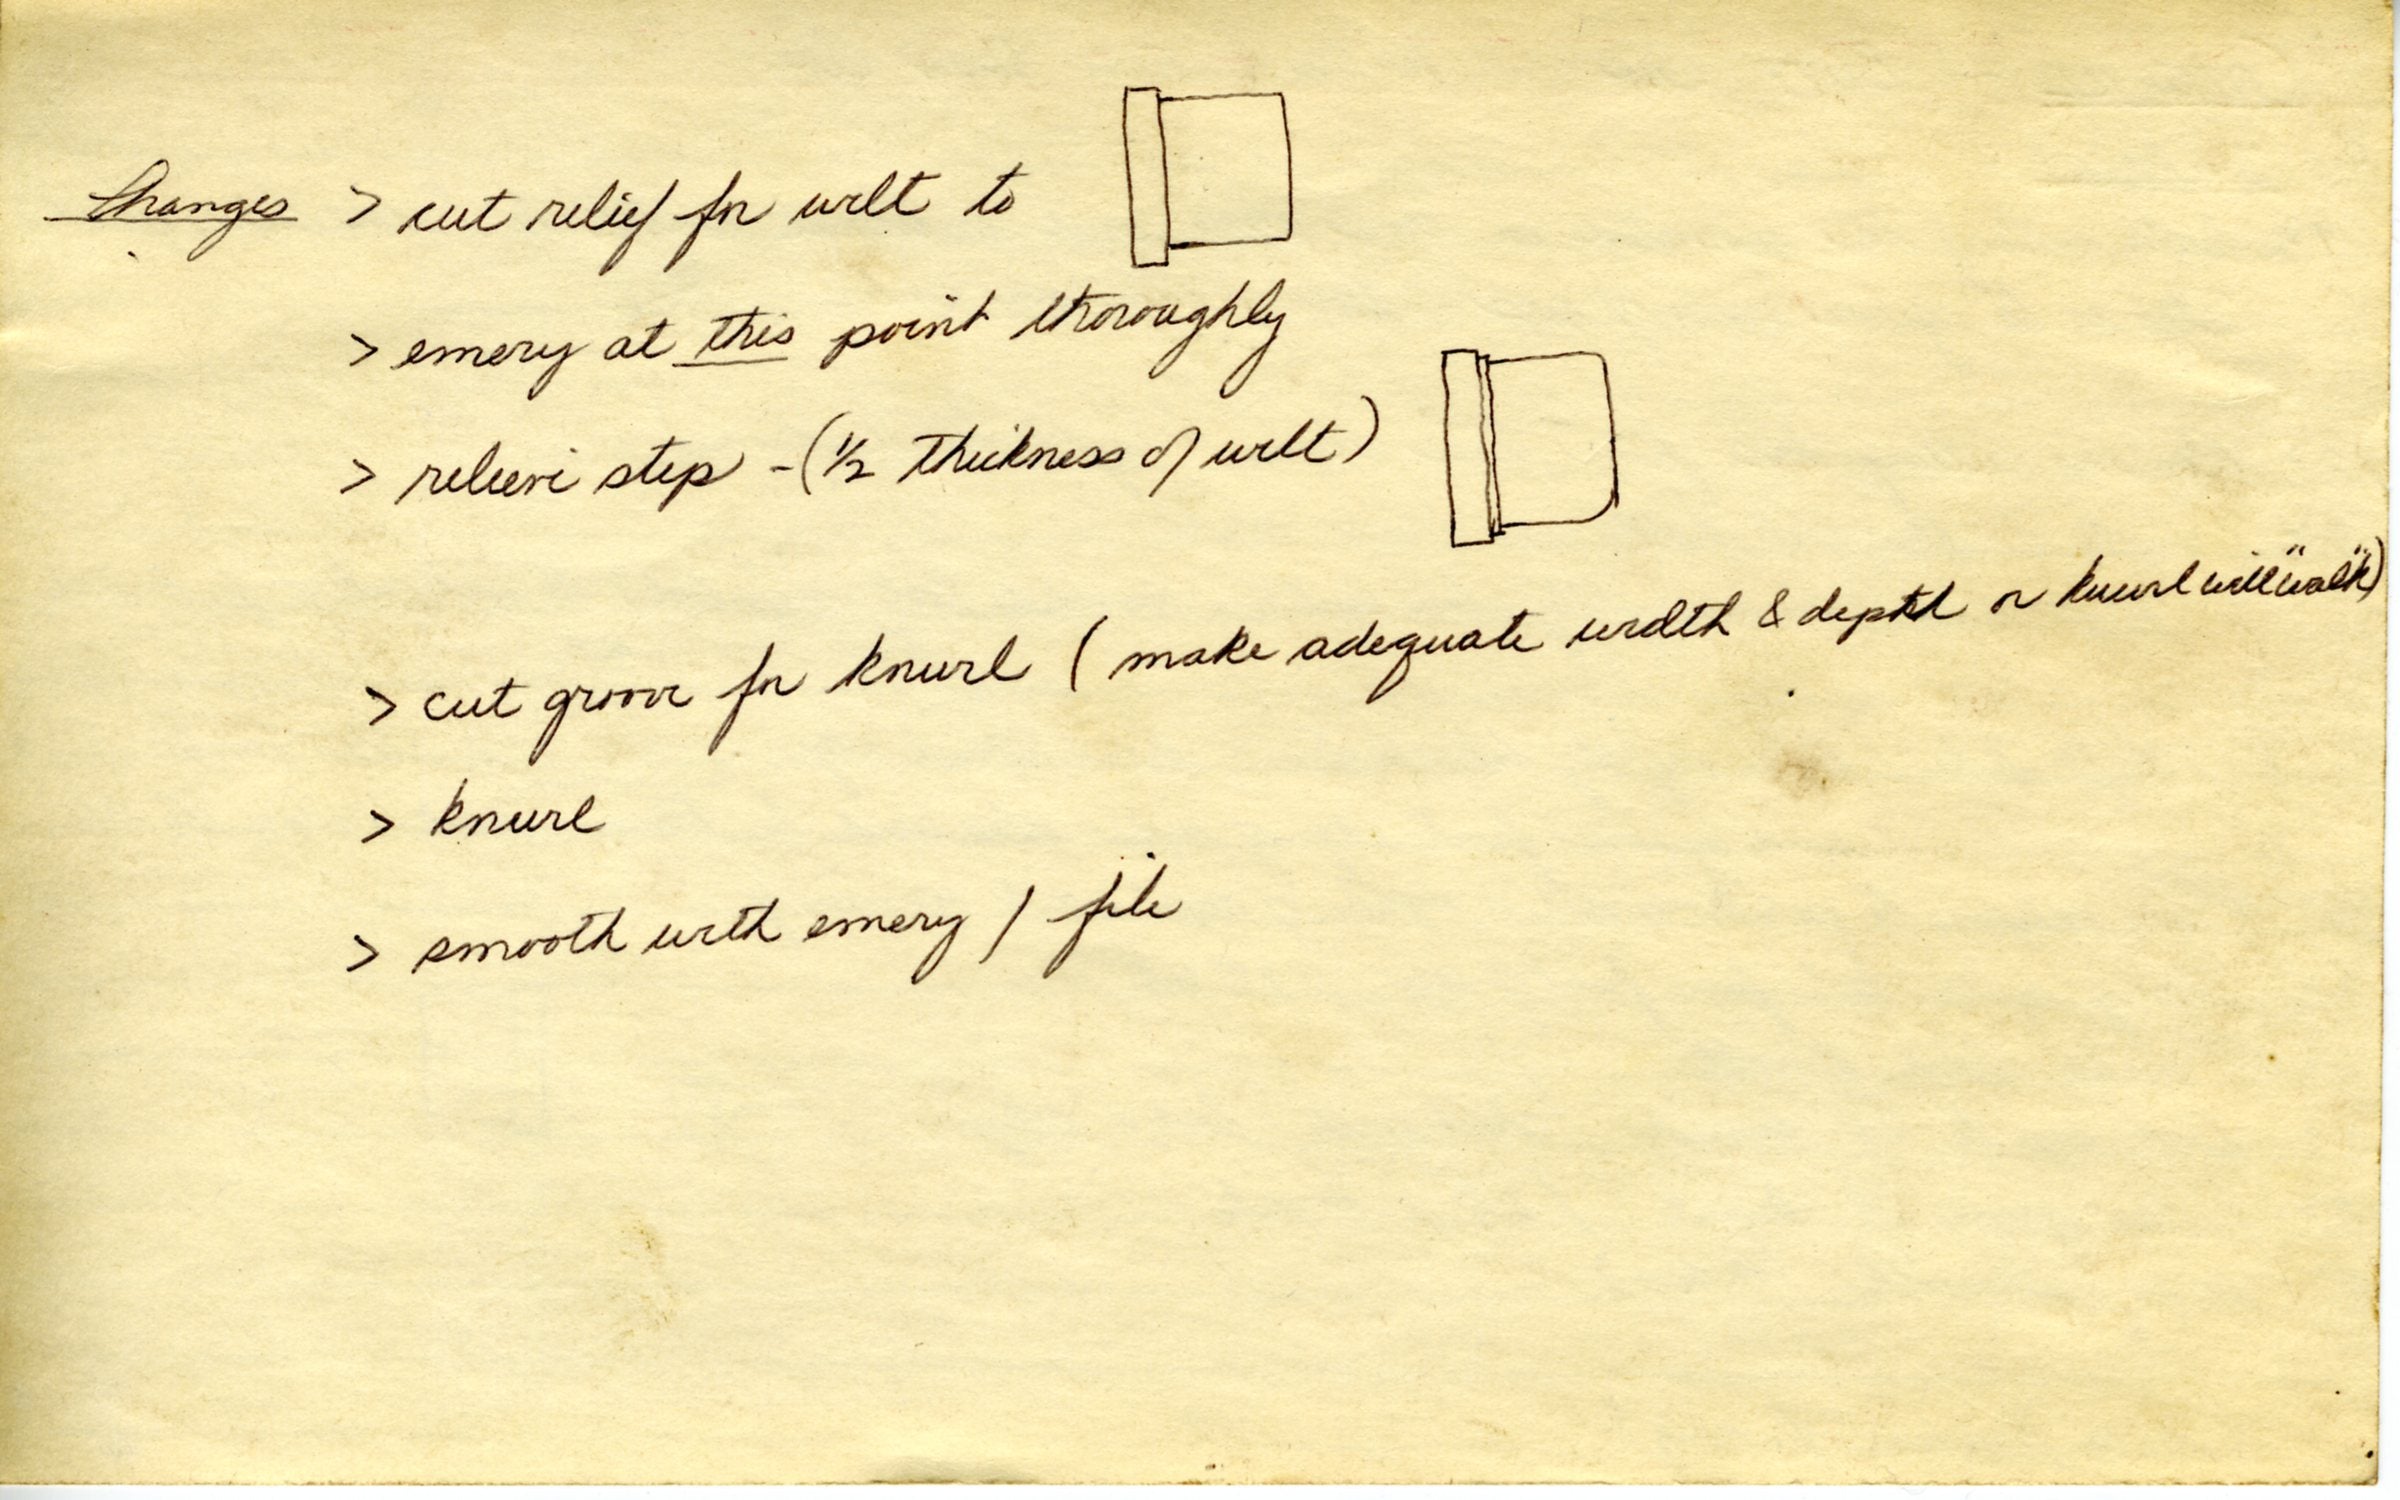 Changes > cut relief for welt to
> emery at this point thoroughly
> relieve step - (1/2 thickness of welt)
> cut groove for knurl ( make adequate width & depth or knurl will "walk")
> knurl
> smooth with emery / file